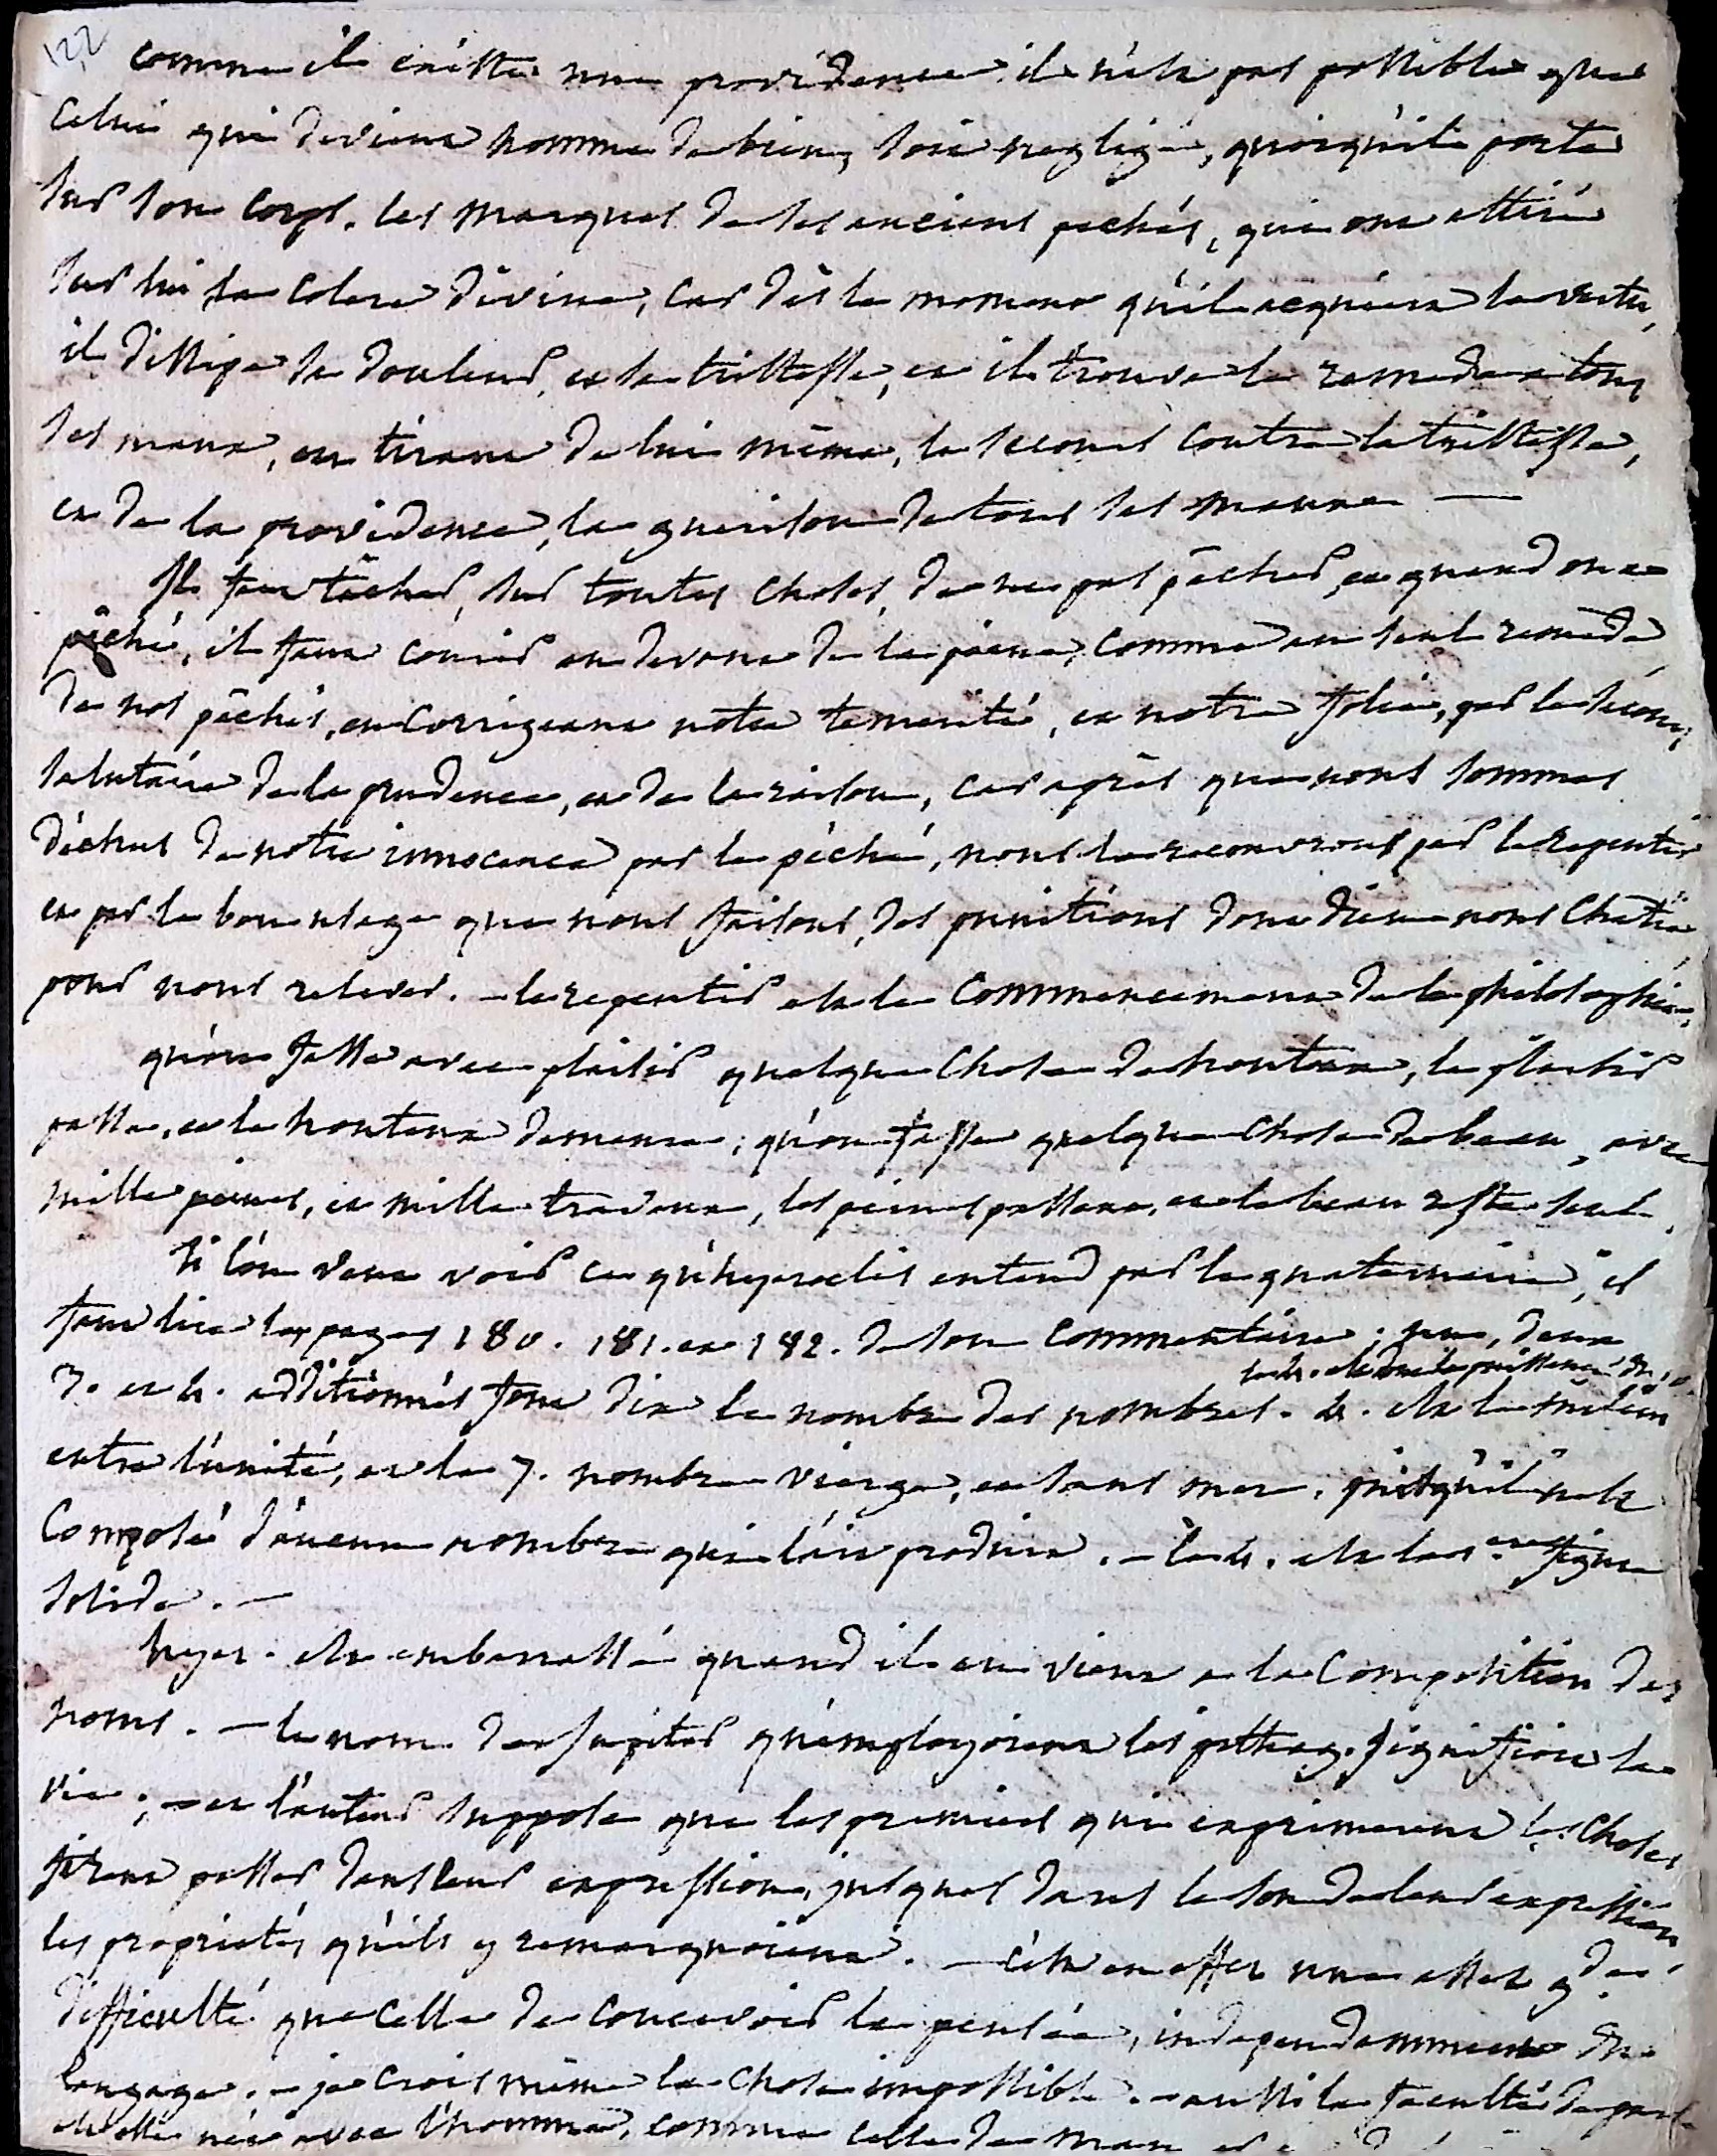 122
comme il existe une providence il n'est pas possible que
celui qui devient homme de bien, soit negligé, quoiqu'il porte
sur son corps les marques de ses anciens pechés, qui ont attiré
sur lui la colere divine, car dès le moment qu'il acquiert la vertu,
il dissipe la douleur, et la tristesse, et il trouve le remede a tous
ses maux, en tirant de lui même, le secours contre la tristesse,
et de la providence, la guerison de tous ses maux —
Il faut tâcher, sur toutes choses, de ne pas pêcher, et quand on a
pêché, il faut courir au devant de la peine, comme au seul remede
de nos pêchés, en corrigeant notre temerité, et notre folie, par le secours
salutaire de la prudence, et de la raison, car après que nous sommes
déchus de notre innocence par le péché, nous la recouvrons par le repentir
et par le bon usage que nous faisons, des punitions dont dieu nous chatie,
pour nous relever. — le repentir est le commencement de la philosophie.
qu'on fasse avec plaisir quelque chose de honteux, le plaisir
passe, et le honteux demeure; qu'on fasse quelque chose de beau, avec
mille peines, et mille travaux, les peines passent, et le beau reste seul.
Si l'on veut voir ce qu'hyeroclès entend par le quaternaire, il
faut lire les pages 180. 181. et 182. de son commentaire; un, deux
le 4. est donc la puissance du 10.
3. et 4. additionnés font dix le nombre des nombres. 4. est le milieu
entre l'unité, et le 7. nombre vierge, et sans mere, puisqu'il n'est
composé d'aucun nombre qui l'ait produit. — le 4. est la 1ere figure
solide. —
hyer. est embarrassé quand il en vient a la composition des
noms. — le nom de Jupiter qu'employoient les pithag. signifioit la
vie; — et l'auteur suppose que les premiers qui exprimerent les choses
firent passer dans leur expression, jusques dans le son de leur expression
les proprietés qu'ils y remarquoient. — c'est en effet une assez gde
difficulté que celle de concevoir la pensée, independamment du
langage. — je crois même la chose impossible. — aussi la faculté de parler
est elle née avec l'homme, comme celle de